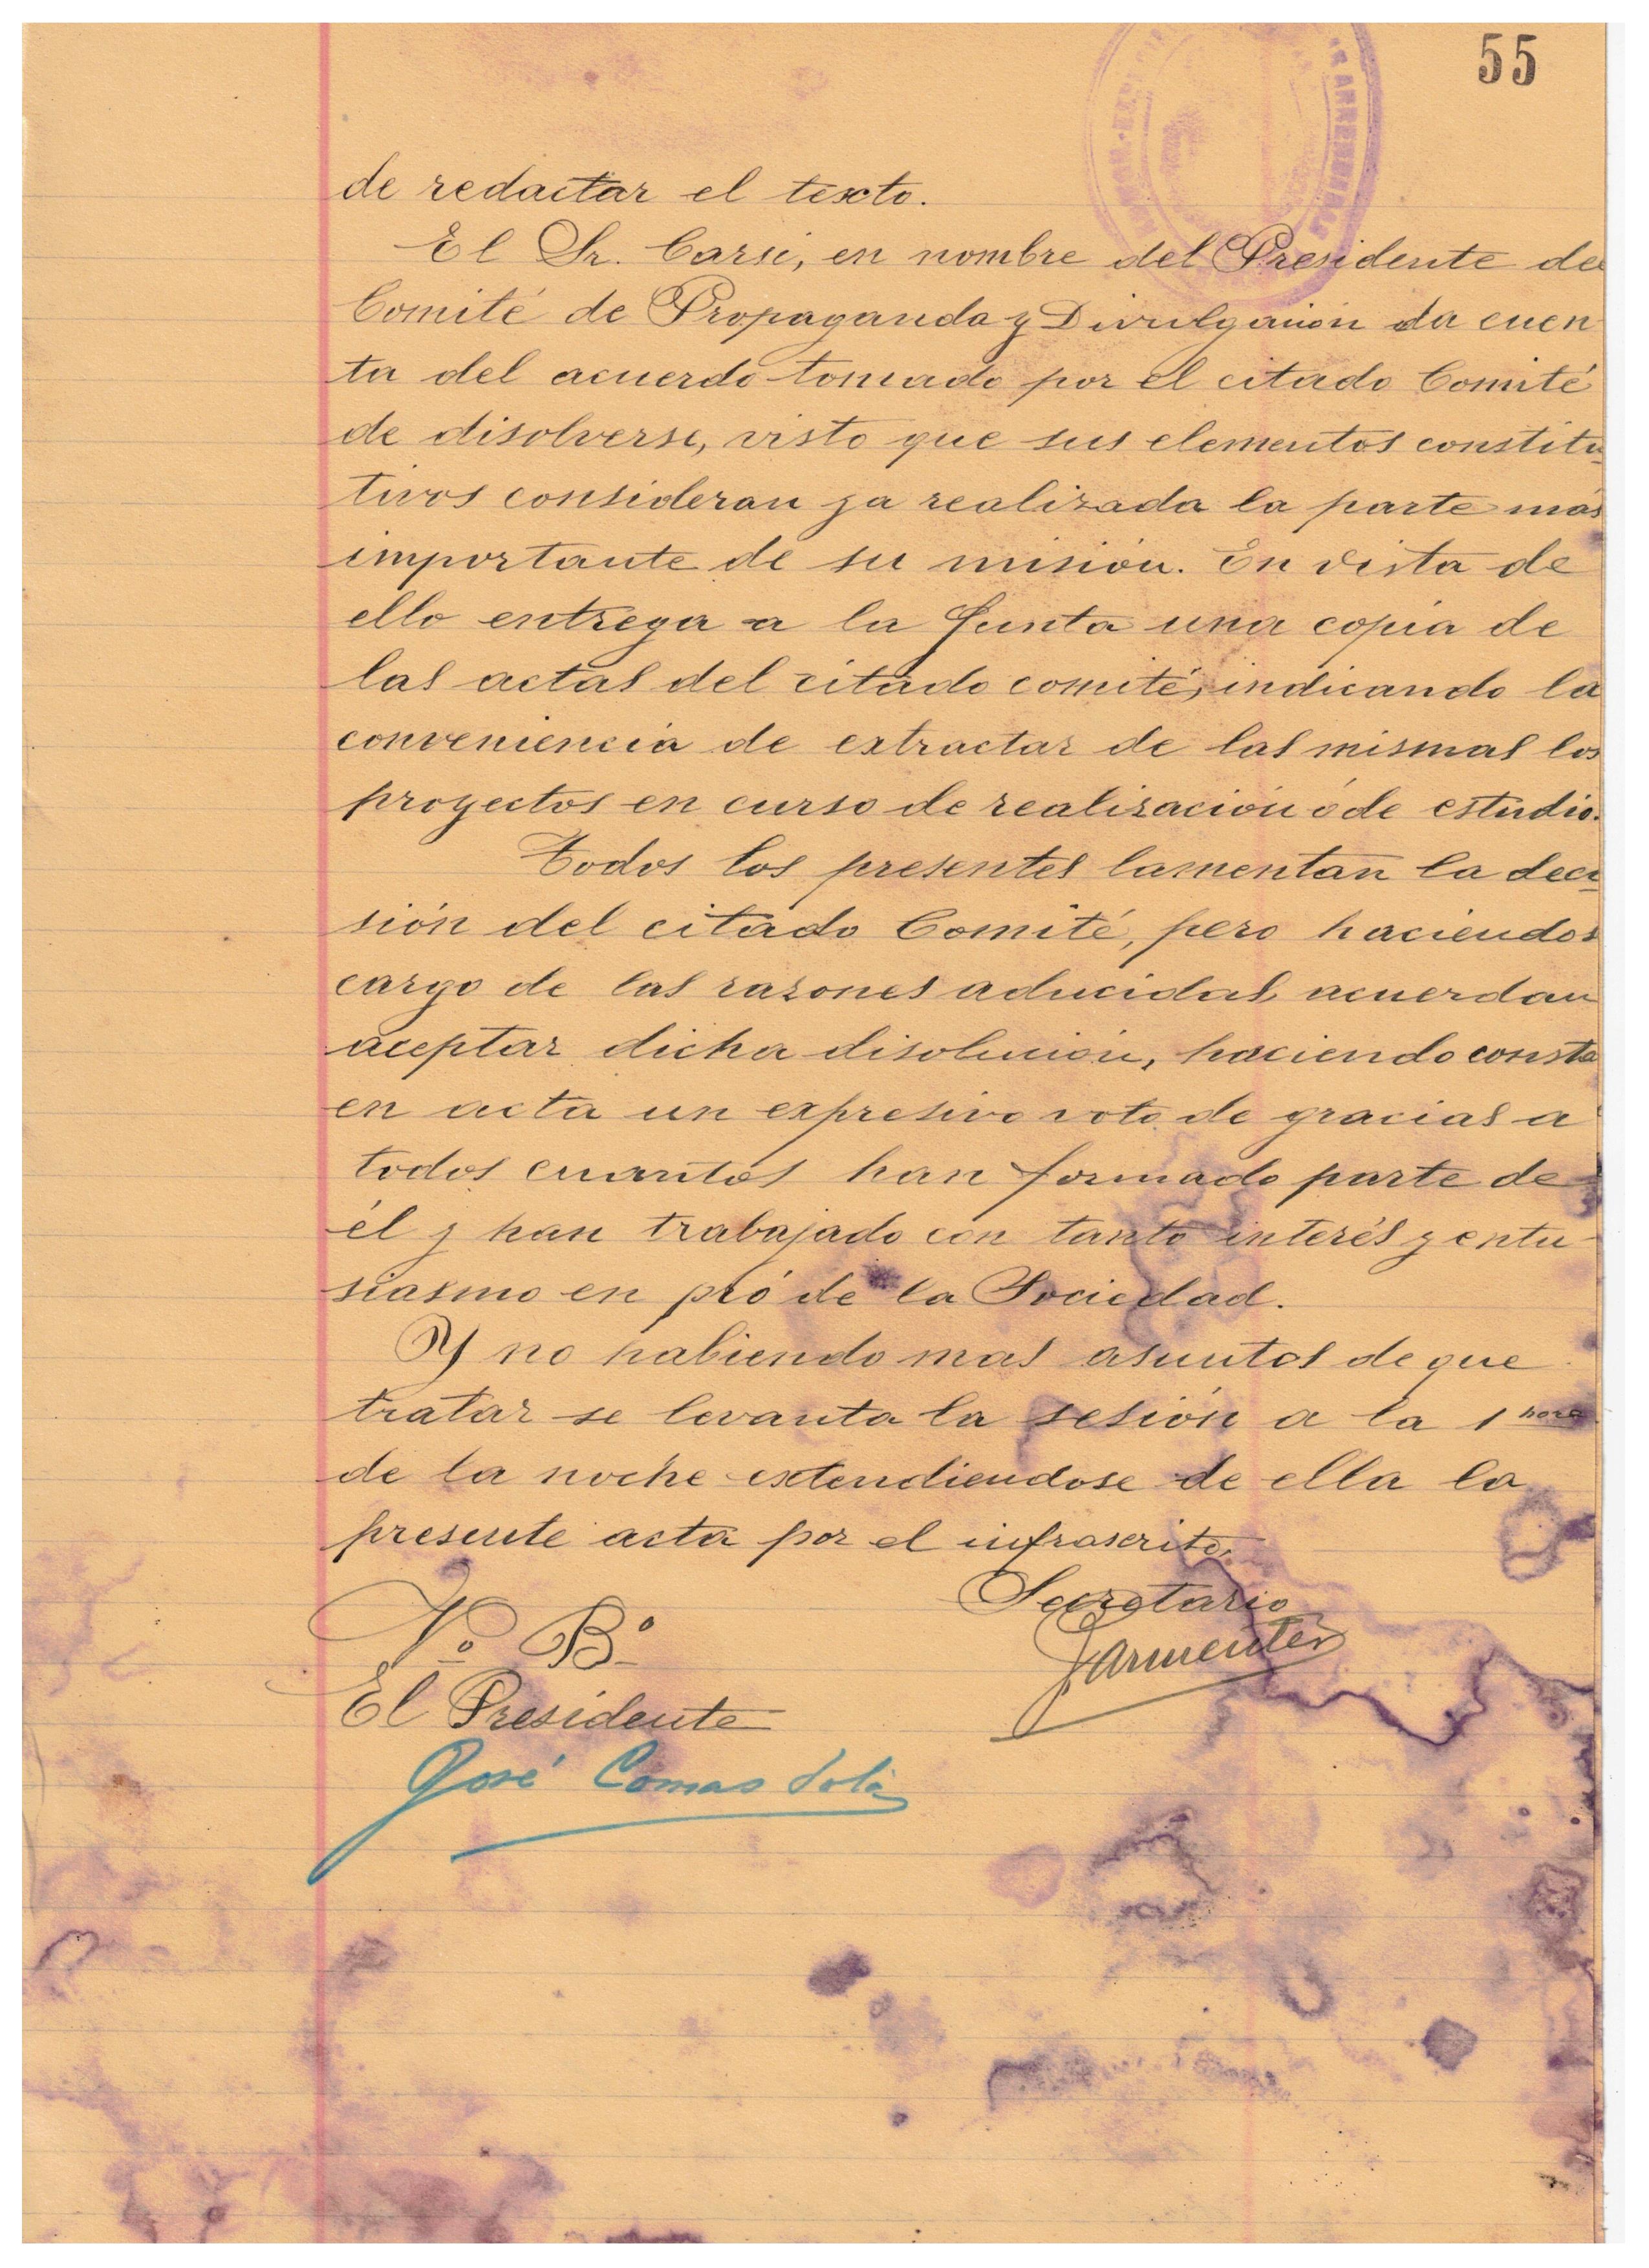 55
de redactar el texto.
El Sr. Carsi, en nombre del Presidente del
Comité de Propaganda y Divulgación da cuen
ta del acuerdo tomado por el citado Comité
de disolverse, visto que sus elementos constitu
tivos consideran ya realizada la parte más
importante de su misión. En vista de
ello entrega a la Junta una copia de
las actas del citado comité, indicando la
conveniencia de extractar de las mismas los
proyectos en curso de realización ó de estudio.
Todos los presentes lamentan la deci
sión del citado Comité, pero haciendos
cargo de las razones aducidas acuerdan
aceptar dicha disolución, haciendo consta
en acta un expresivo voto de gracias a
todos cuantos han formado parte de
él y han trabajado con tanto interés y entu-
siasmo en pró de la Sociedad.
Y no habiendo mas asuntos de que
tratar se levanta la sesión a la 1 hora
de la noche extendiendose de ella la
presente acta por el infrascrito,
Secretario
Armenter
Vº Bº
El Presidente
José Comas Solà